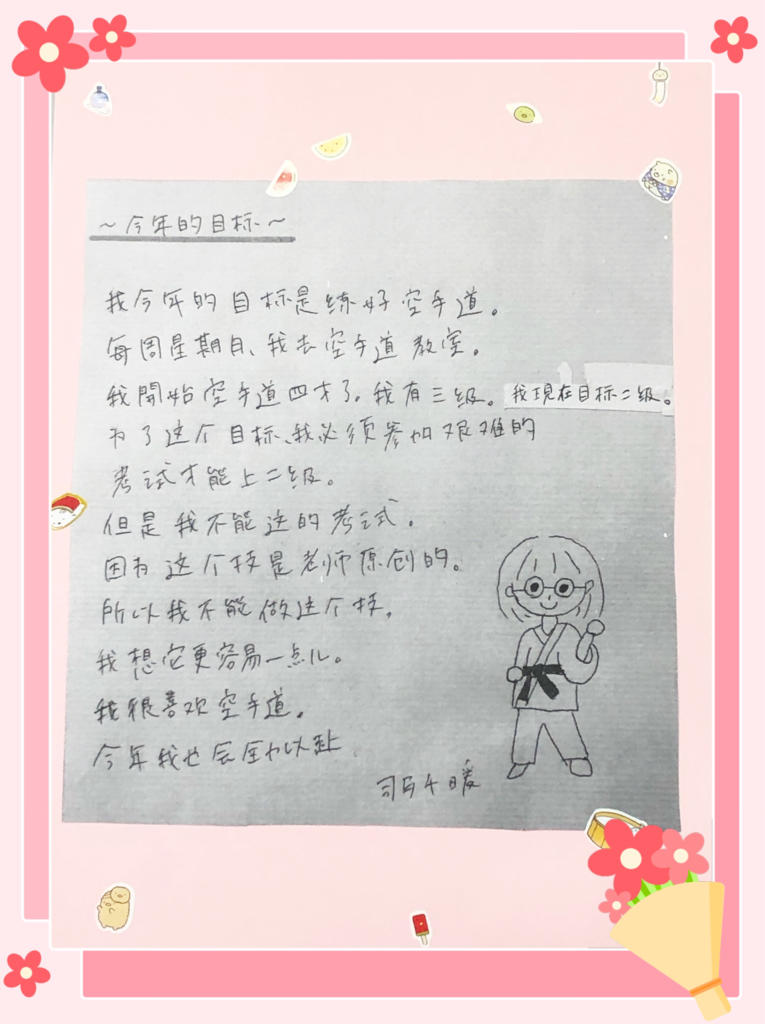 ～今年的目标～
我今年的目标是练好空手道。
每周星期日、我去空手道教室。
我開始空手道四才了。我有三级。我現在目标二级。
为了这个目标、我必须参加艰难的
考试才能上二级。
但是我不能这的考试。
因为这个技是老师原创的。
所以我不能做这个技。
我想它更容易一点儿。
我很喜欢空手道。
今年我也会全力以赴
司马千暖